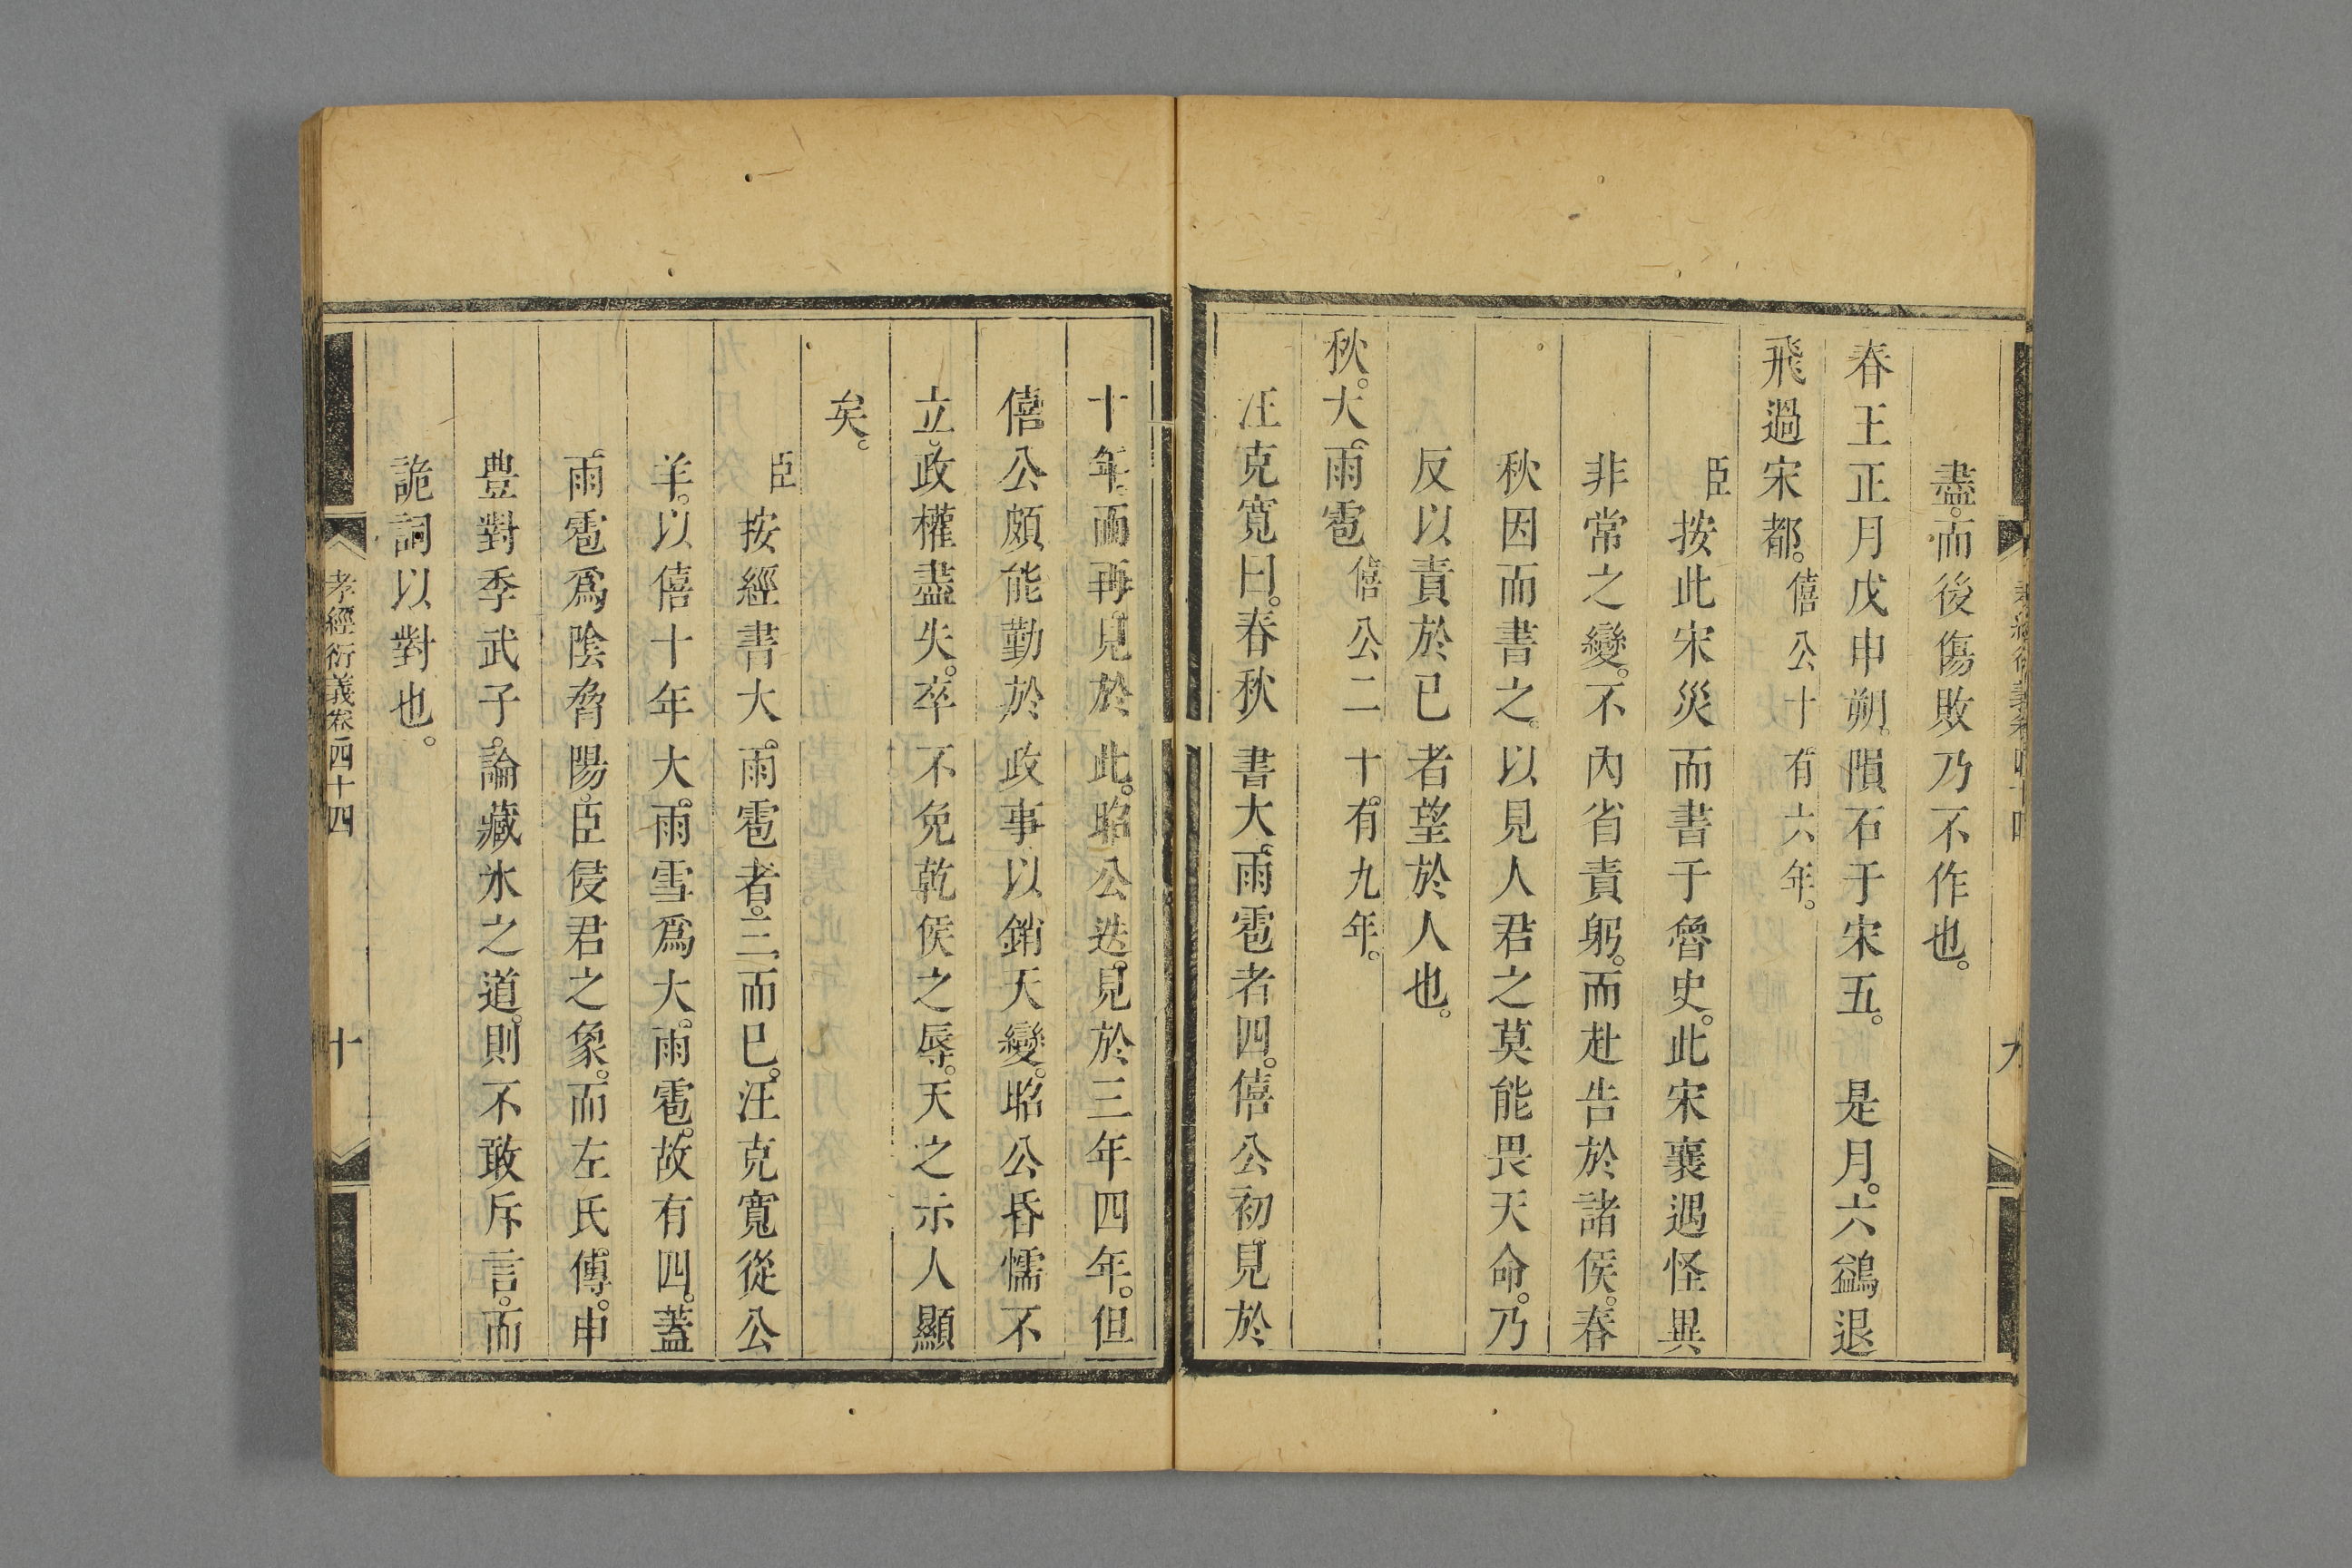 盡。而後傷敗乃不作也。
春王正月戊申朔。隕石于宋五。　是月。六鷁退
飛過宋都。僖公十有六年。
臣按此宋災而書于魯史。此宋襄遇怪異
非常之變。不內省責躬。而赴告於諸侯。春
秋因而書之。以見人君之莫能畏天命。乃
反以責於已者望於人也。
秋。大雨雹僖公二十有九年。
汪克寬曰。春秋書大雨雹者四。僖公初見於
十年。而再見於此。昭公迭見於三年四年。但
僖公頗能勤於政事以銷天變。昭公昏懦不
立。政權盡失。卒不免乾侯之辱。天之示人顯
矣。
臣按經書大雨雹者。三而已。汪克寬從公
羊。以僖十年大雨雪爲大雨雹。故有四。蓋
雨雹爲陰脅陽。臣侵君之象。而左氏傳。申
豊對季武子。論藏氷之道。則不敢斥言。而
詭詞以對也。
孝經衍義卷四十四　十